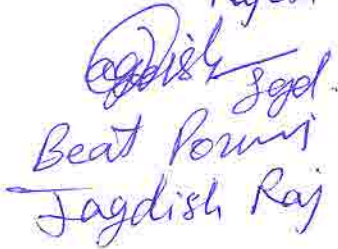 Jagdish
Sgd.
Beat
Jagdish Raj